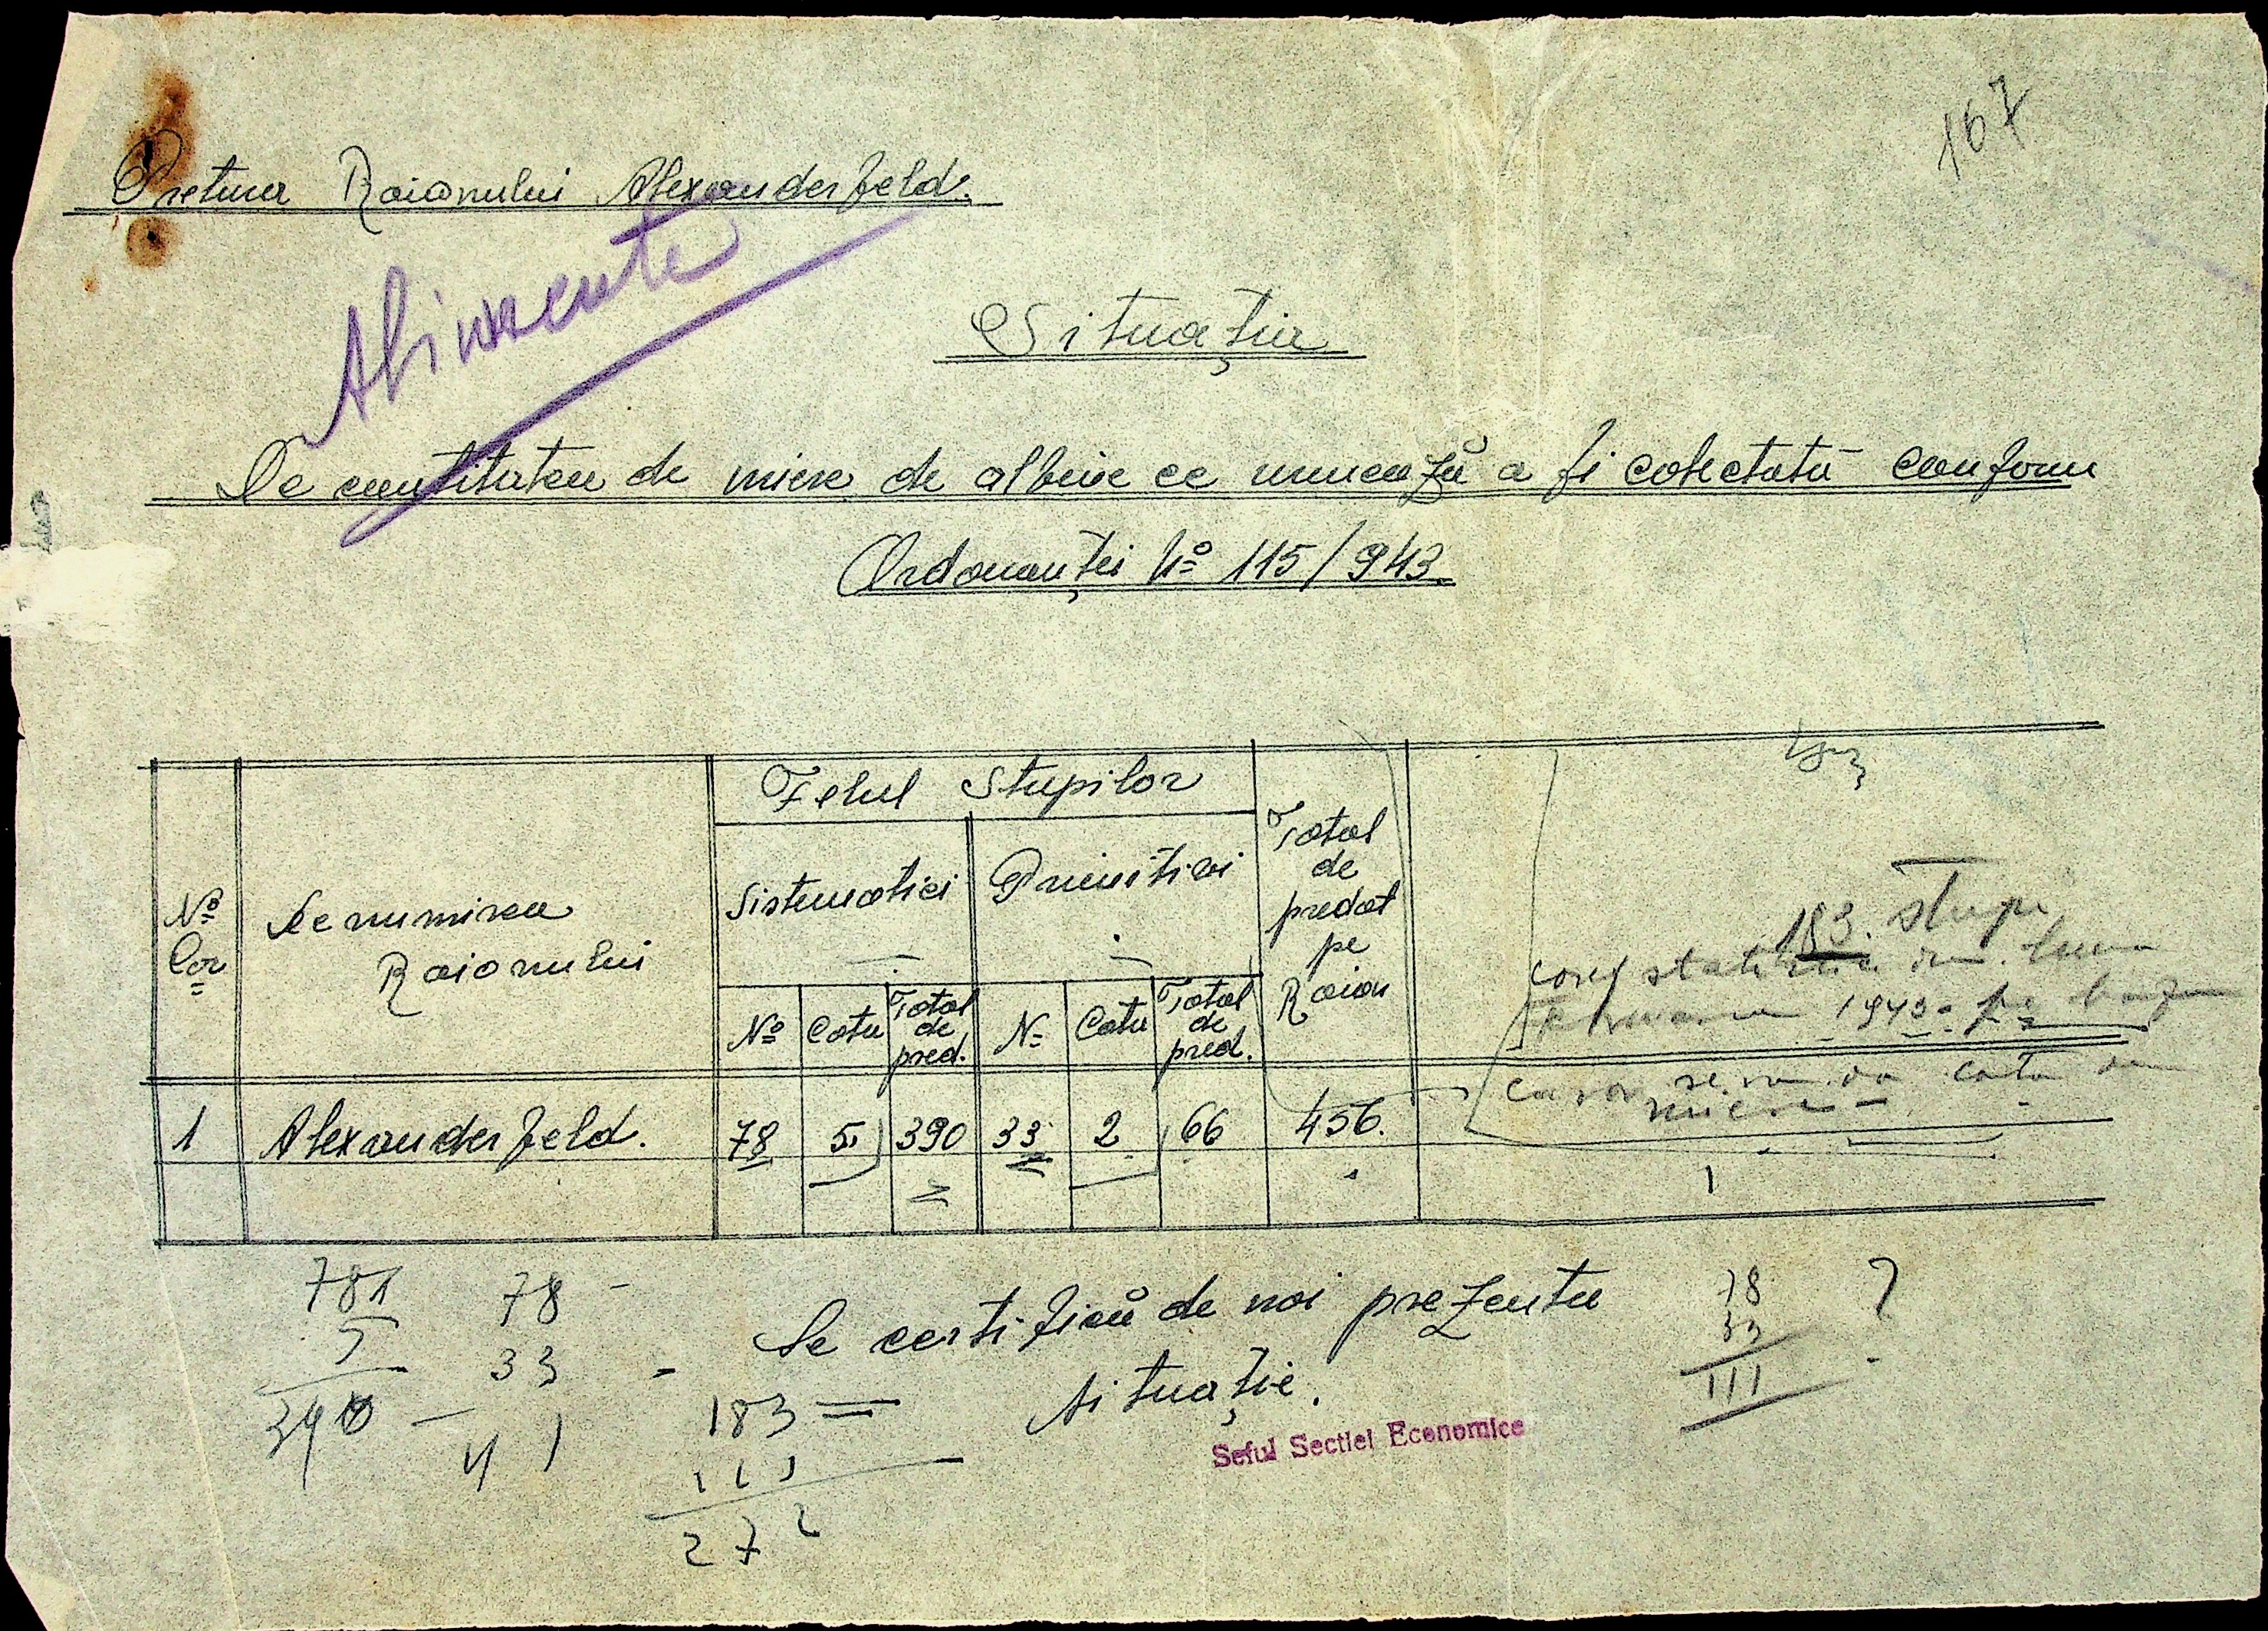 167
Pretura Raionului Alexanderfeld.
Alimente
Situația
De cantitatea de miere de albine ce urmează a fi colectată conform
Ordonanței No 115/943.
No Cor
Denumirea Raionului
Felul Stupilor
Sistematici
Primitivi
Total de predat pe Raion
No
Cota
Total de pred.
No
Cota
Total de pred.
183. stupi
conf statistica din luna
Februarie 1943. pe baza
careia se va da cota de
miere
1 Alexanderfeld. 78 5 390 33 2 66 456.
78
5
390
78
33
183
111
272
Se certifică de noi prezenta
situație.
Seful Sectiei Economice
78
33
111
?